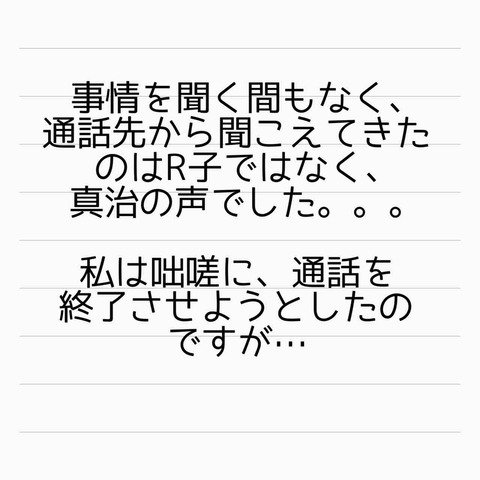 事情を聞く間もなく、
通話先から聞こえてきた
のはR子ではなく、
真治の声でした。。。
私は咄嗟に、通話を
終了させようとしたの
ですが…